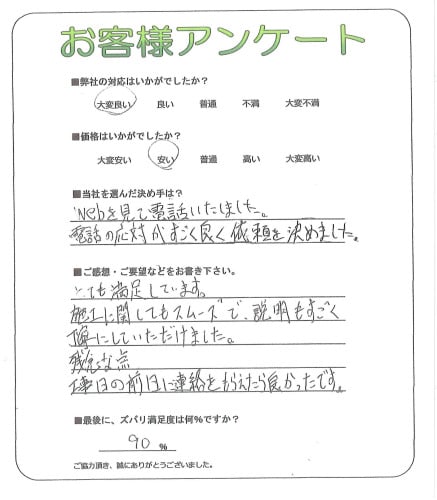 お客様アンケート
■弊社の対応はいかがでしたか？
大変良い 良い 普通 不満 大変不満
■価格はいかがでしたか？
大変安い 安い 普通 高い 大変高い
■当社を選んだ決め手は？
Webを見て電話いたしました。
電話の応対がすごく良く依頼を決めました。
■ご感想・ご要望などをお書き下さい。
とても満足しています。
施工に関してもスムーズで、説明もすごく
丁寧にしていただけました。
残念な点
工事日の前日に連絡をもらえたら良かったです。
■最後に、ズバリ満足度は何%ですか？
90 %
ご協力頂き、誠にありがとうございました。